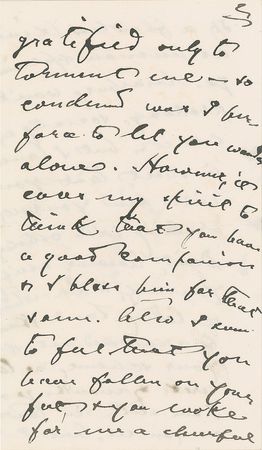 gratified only to
torment me — so
condemned was I be-
fore to let you wander
alone. However, it
eases my spirit to
think that you have
a good companion
& I bless him for that
same. Also I seem
to feel that you
have fallen on your
feet, & you woke
for me a cheerful